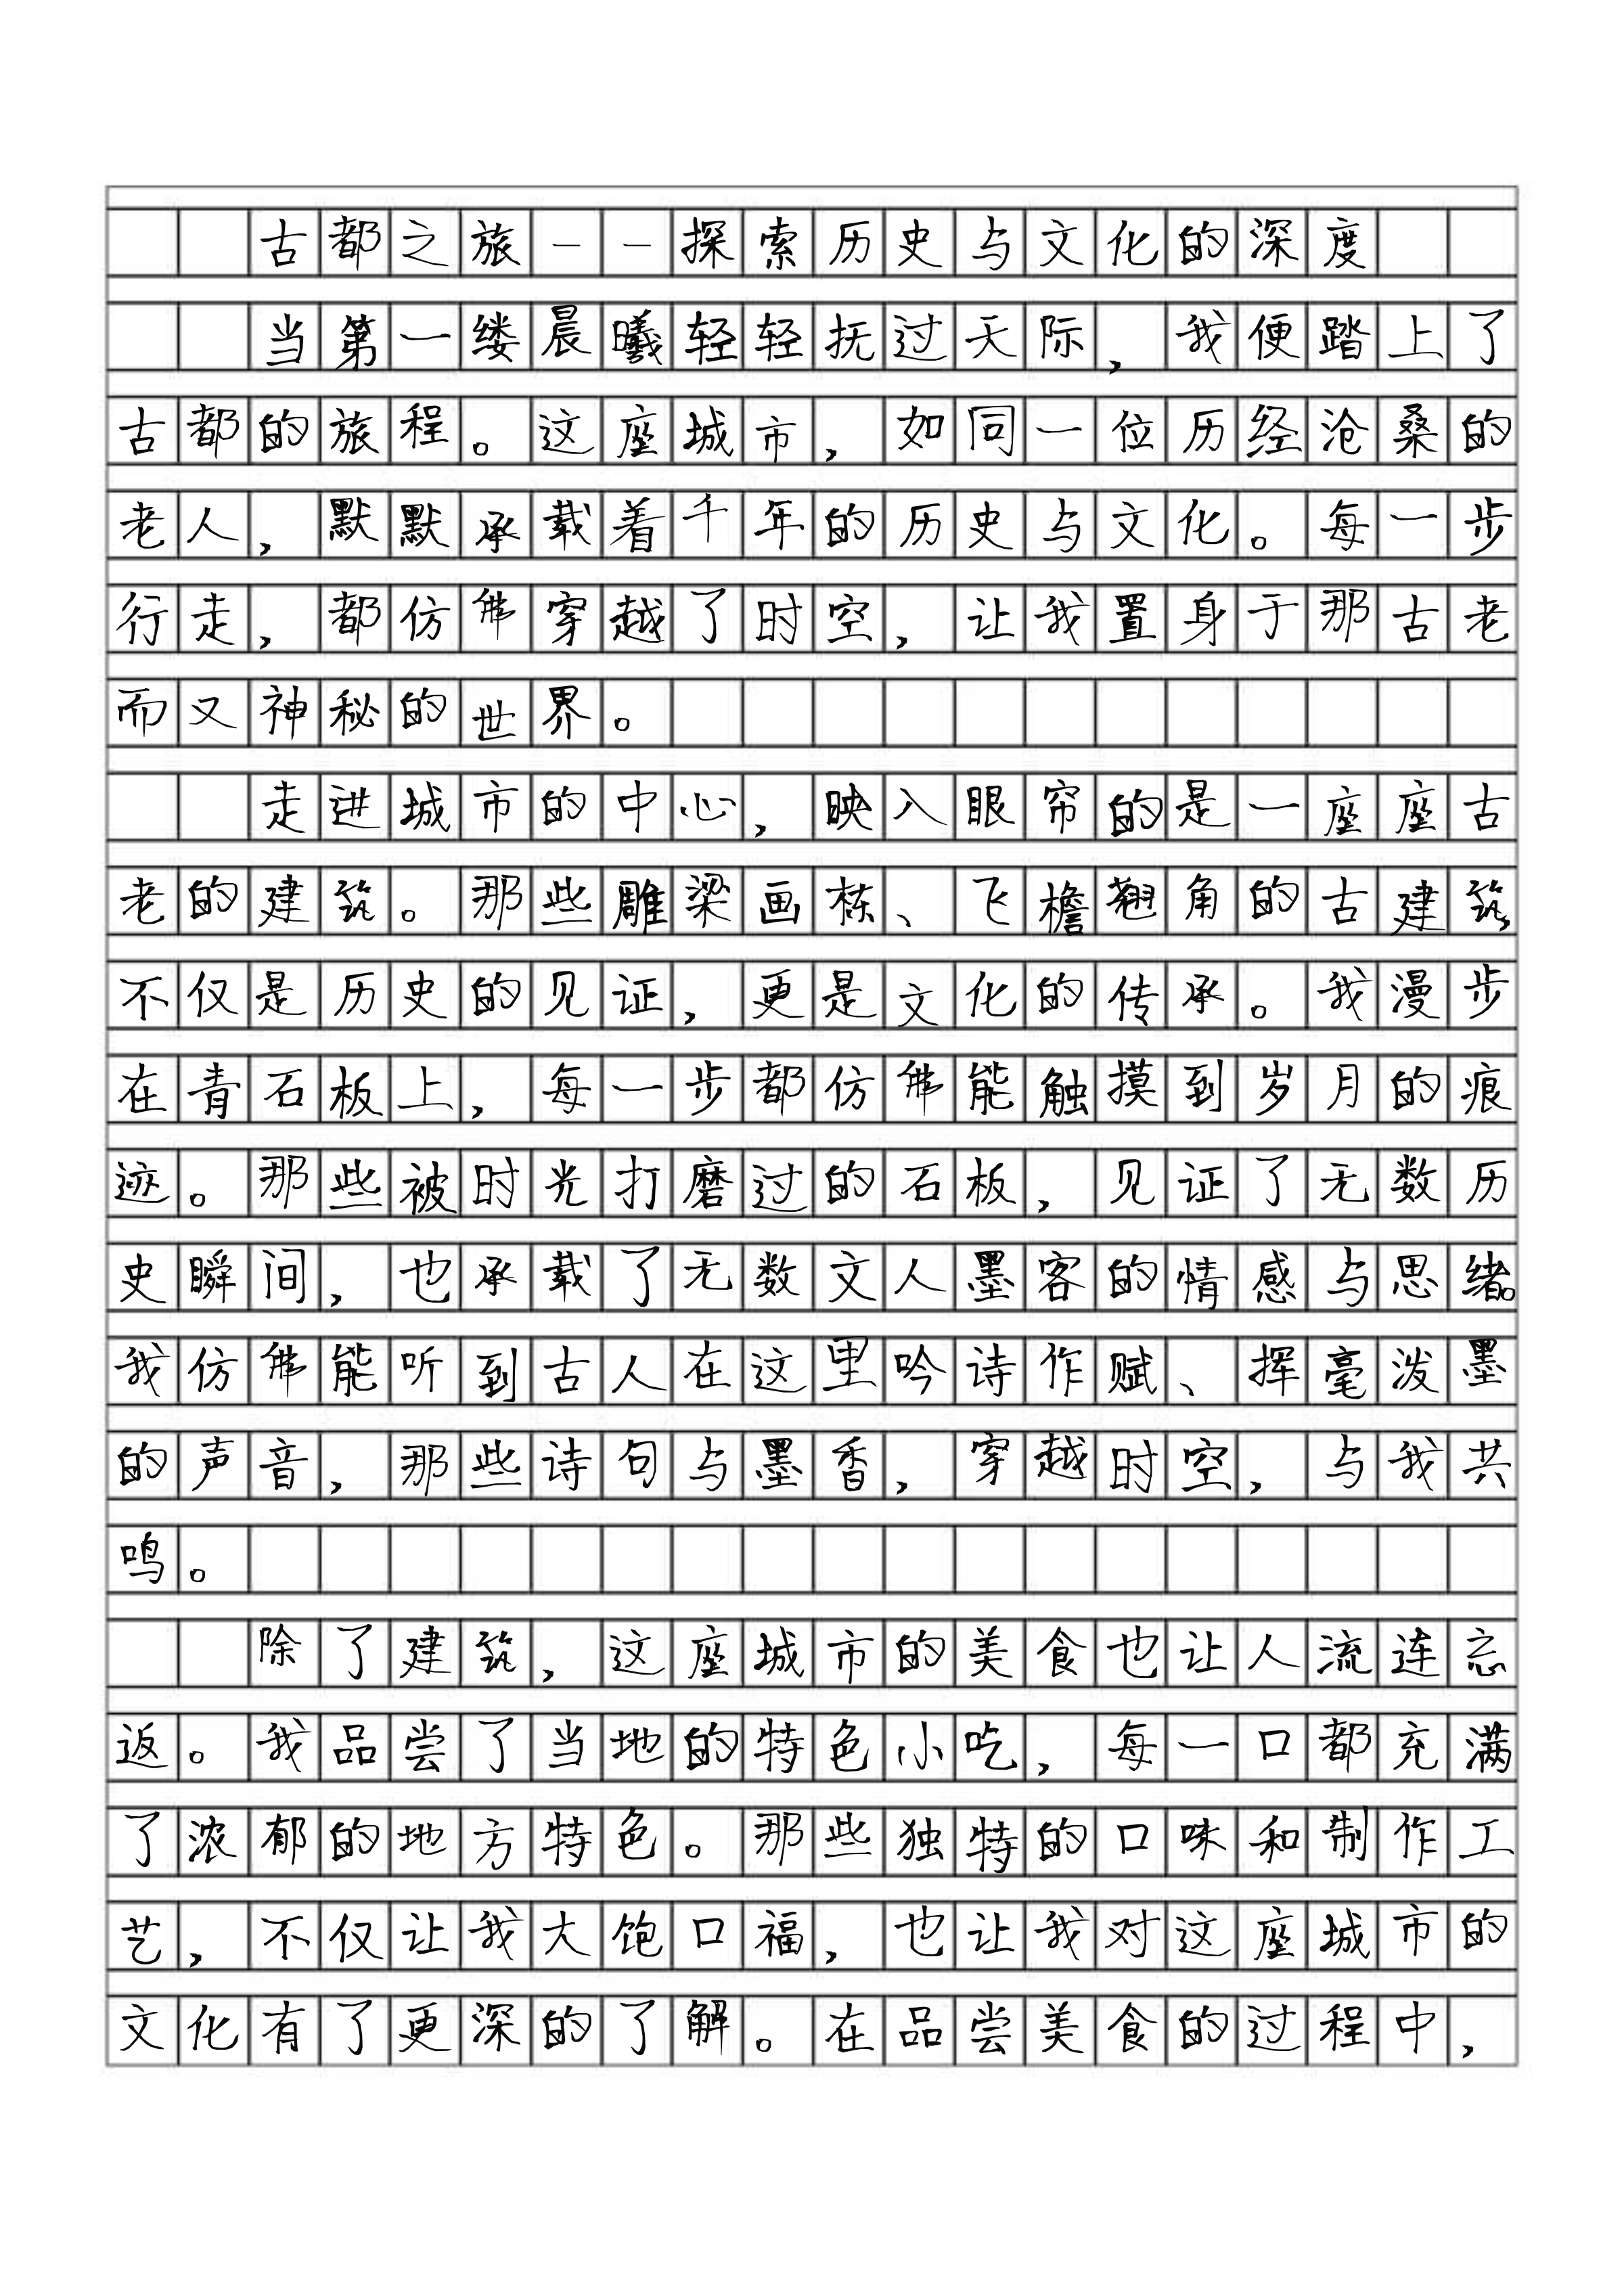 古都之旅——探索历史与文化的深度
当第一缕晨曦轻轻抚过天际，我便踏上了
古都的旅程。这座城市，如同一位历经沧桑的
老人，默默承载着千年的历史与文化。每一步
行走，都仿佛穿越了时空，让我置身于那古老
而又神秘的世界。
走进城市的中心，映入眼帘的是一座座古
老的建筑。那些雕梁画栋、飞檐翘角的古建筑，
不仅是历史的见证，更是文化的传承。我漫步
在青石板上，每一步都仿佛能触摸到岁月的痕
迹。那些被时光打磨过的石板，见证了无数历
史瞬间，也承载了无数文人墨客的情感与思绪。
我仿佛能听到古人在这里吟诗作赋、挥毫泼墨
的声音，那些诗句与墨香，穿越时空，与我共
鸣。
除了建筑，这座城市的美食也让人流连忘
返。我品尝了当地的特色小吃，每一口都充满
了浓郁的地方特色。那些独特的口味和制作工
艺，不仅让我大饱口福，也让我对这座城市的
文化有了更深的了解。在品尝美食的过程中，